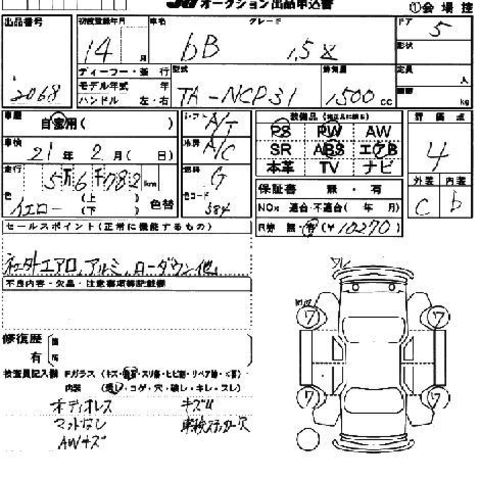 オークション出品申込書 ①会場控
出品番号 初度登録年月 車名 グレード ドア
2068 14 月 bB 1,5 Z 5
形状
ディーフー・並行 型式 排気量 定員 人
モデル年式 年
ハンドル 左・右 TA-NCP31 1,500 cc 積載 kg
車歴 自家用( ) シフト A/T 装備品 評価点
PS PW AW
車検 21年 2月( 日) 冷房 A/C SR ABS エアB 4
本革 TV ナビ
走行 5万6千782km 燃料 G 外装 内装
保証書 無・有 C b
色 イエロー (上)(下) 色替 色コード 584 NOx 適合・不適合( 年 月)
セールスポイント(正常に機能するもの) R券 無・有(¥10270)
エアロ,アルミ,ローダウン他,
不良内容・欠品・注意事項等記載欄
修復歴 箇
有 所
検査員記入欄 Fガラス (キズ・飛石・スリ傷・ヒビ割・リペア跡・×要)
内装 (汚レ・コゲ・穴・破レ・キレ・スレ)
オーディオレス キズU
マットなし 車検ステッカー穴
AWキズ
7 7
7 7